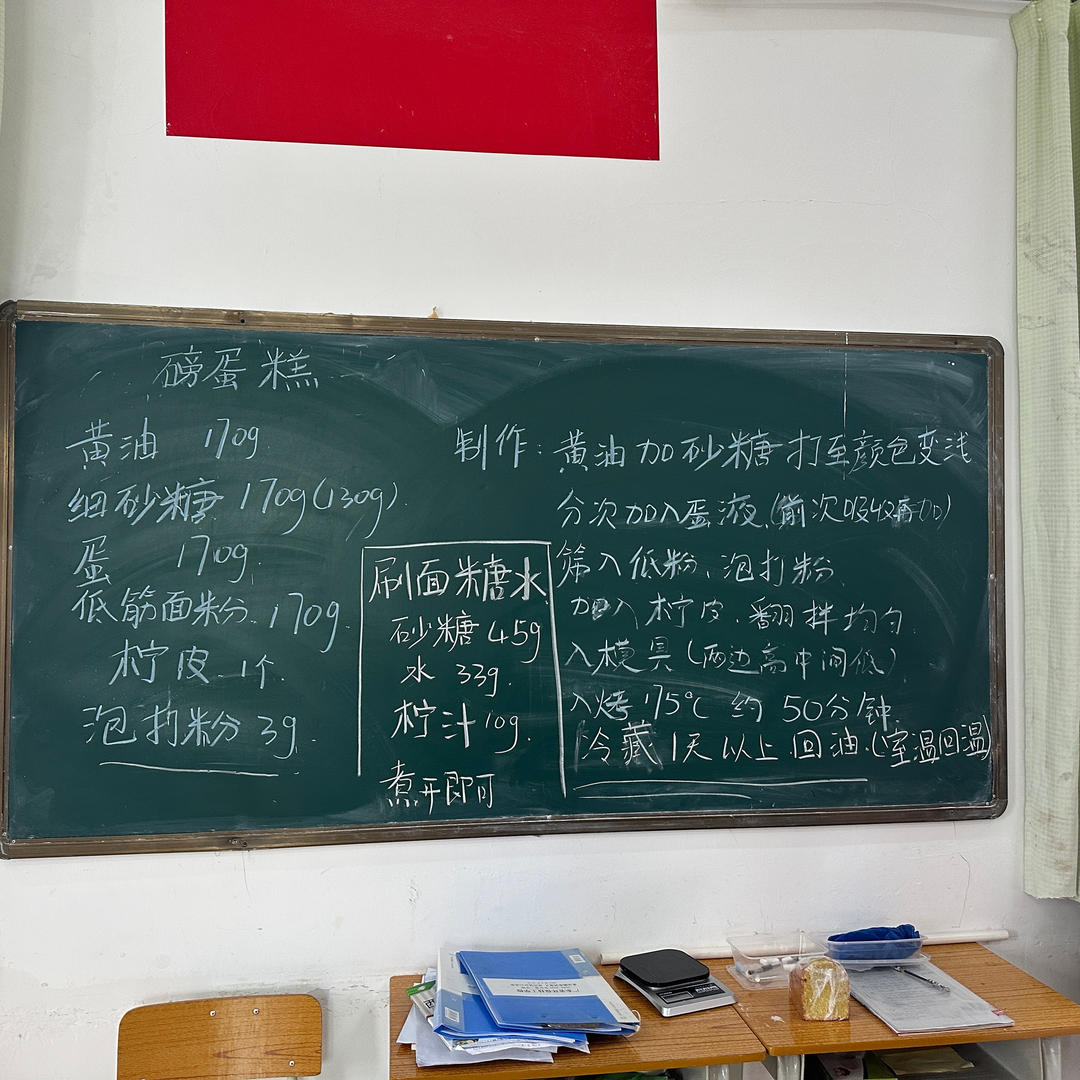 磅蛋糕
黄油 170g
细砂糖 170g(130g)
蛋 170g.
低筋面粉.170g.
柠皮.1个.
泡打粉 3g.
刷面糖水
砂糖 45g
水 33g.
柠汁 10g.
煮开即可
制作:黄油加砂糖打至颜色变浅
分次加入蛋液(前次吸收再加)
筛入低粉、泡打粉.
加入柠皮.翻拌均匀.
入模具(两边高中间低)
入烤175℃ 约 50分钟.
冷藏1天以上 回油.(室温回温)